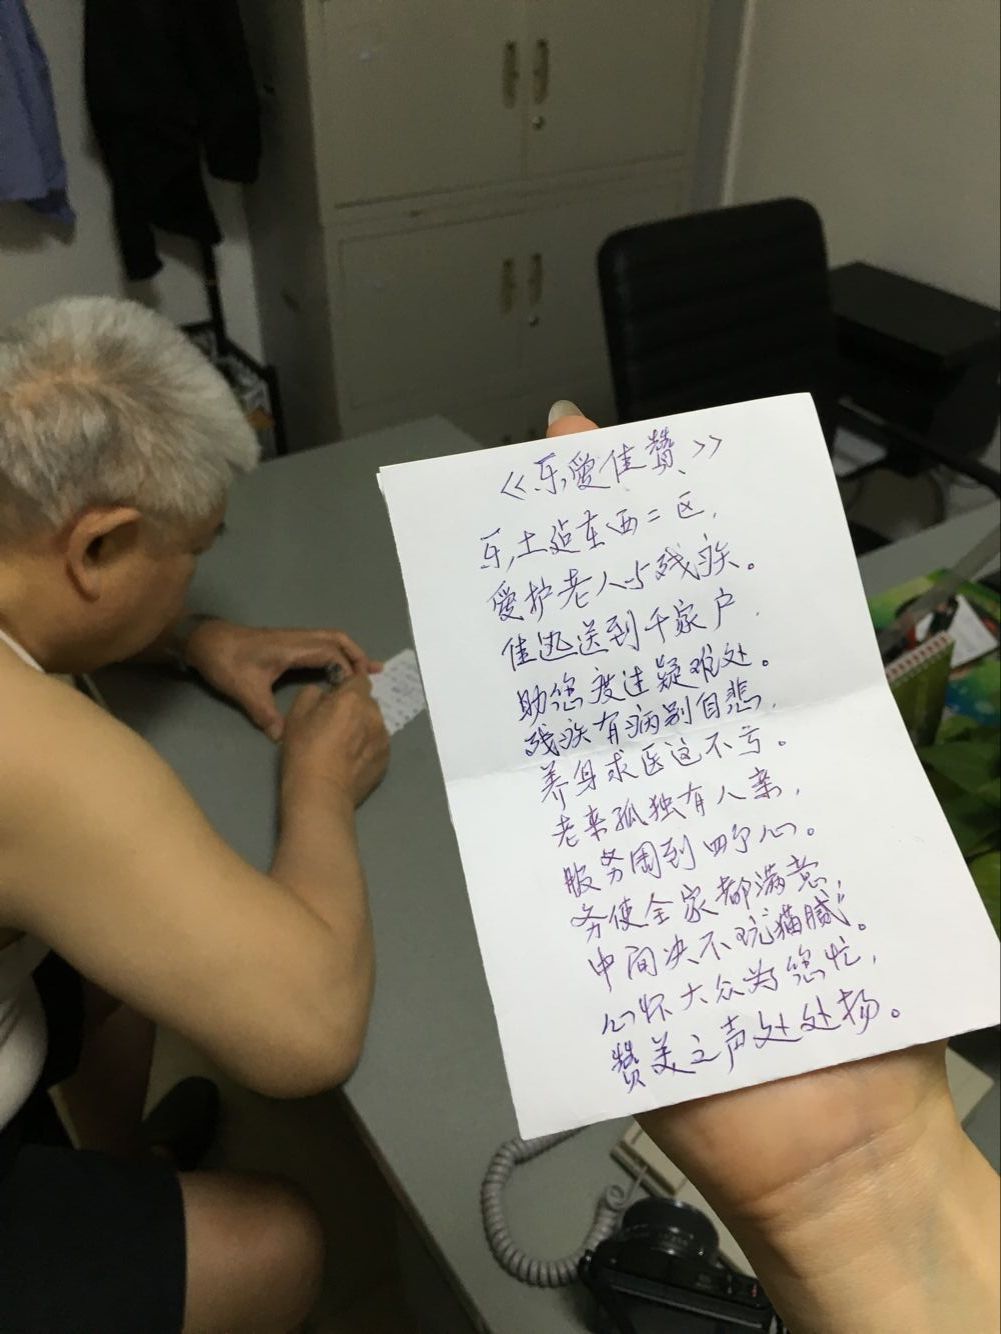 《乐愛佳贊》
乐土延东西二区，
愛护老人与残疾。
佳迅送到千家户，
助您度过疑难处。
残疾有病别自悲，
养身求医这不亏。
老来孤独有人亲，
服务周到四个心。
务使全家都满意，
中间决不玩猫腻。
心怀大众为您忙，
赞美之声处处扬。